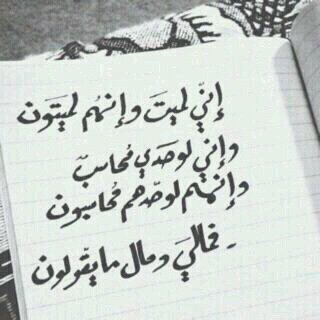 إنّي لميتَ وإنهم لميتون
وإني لوحدي محاسبّ
وإنهم لوحدهم محاسبون
- فمالي ومال ما يقولون